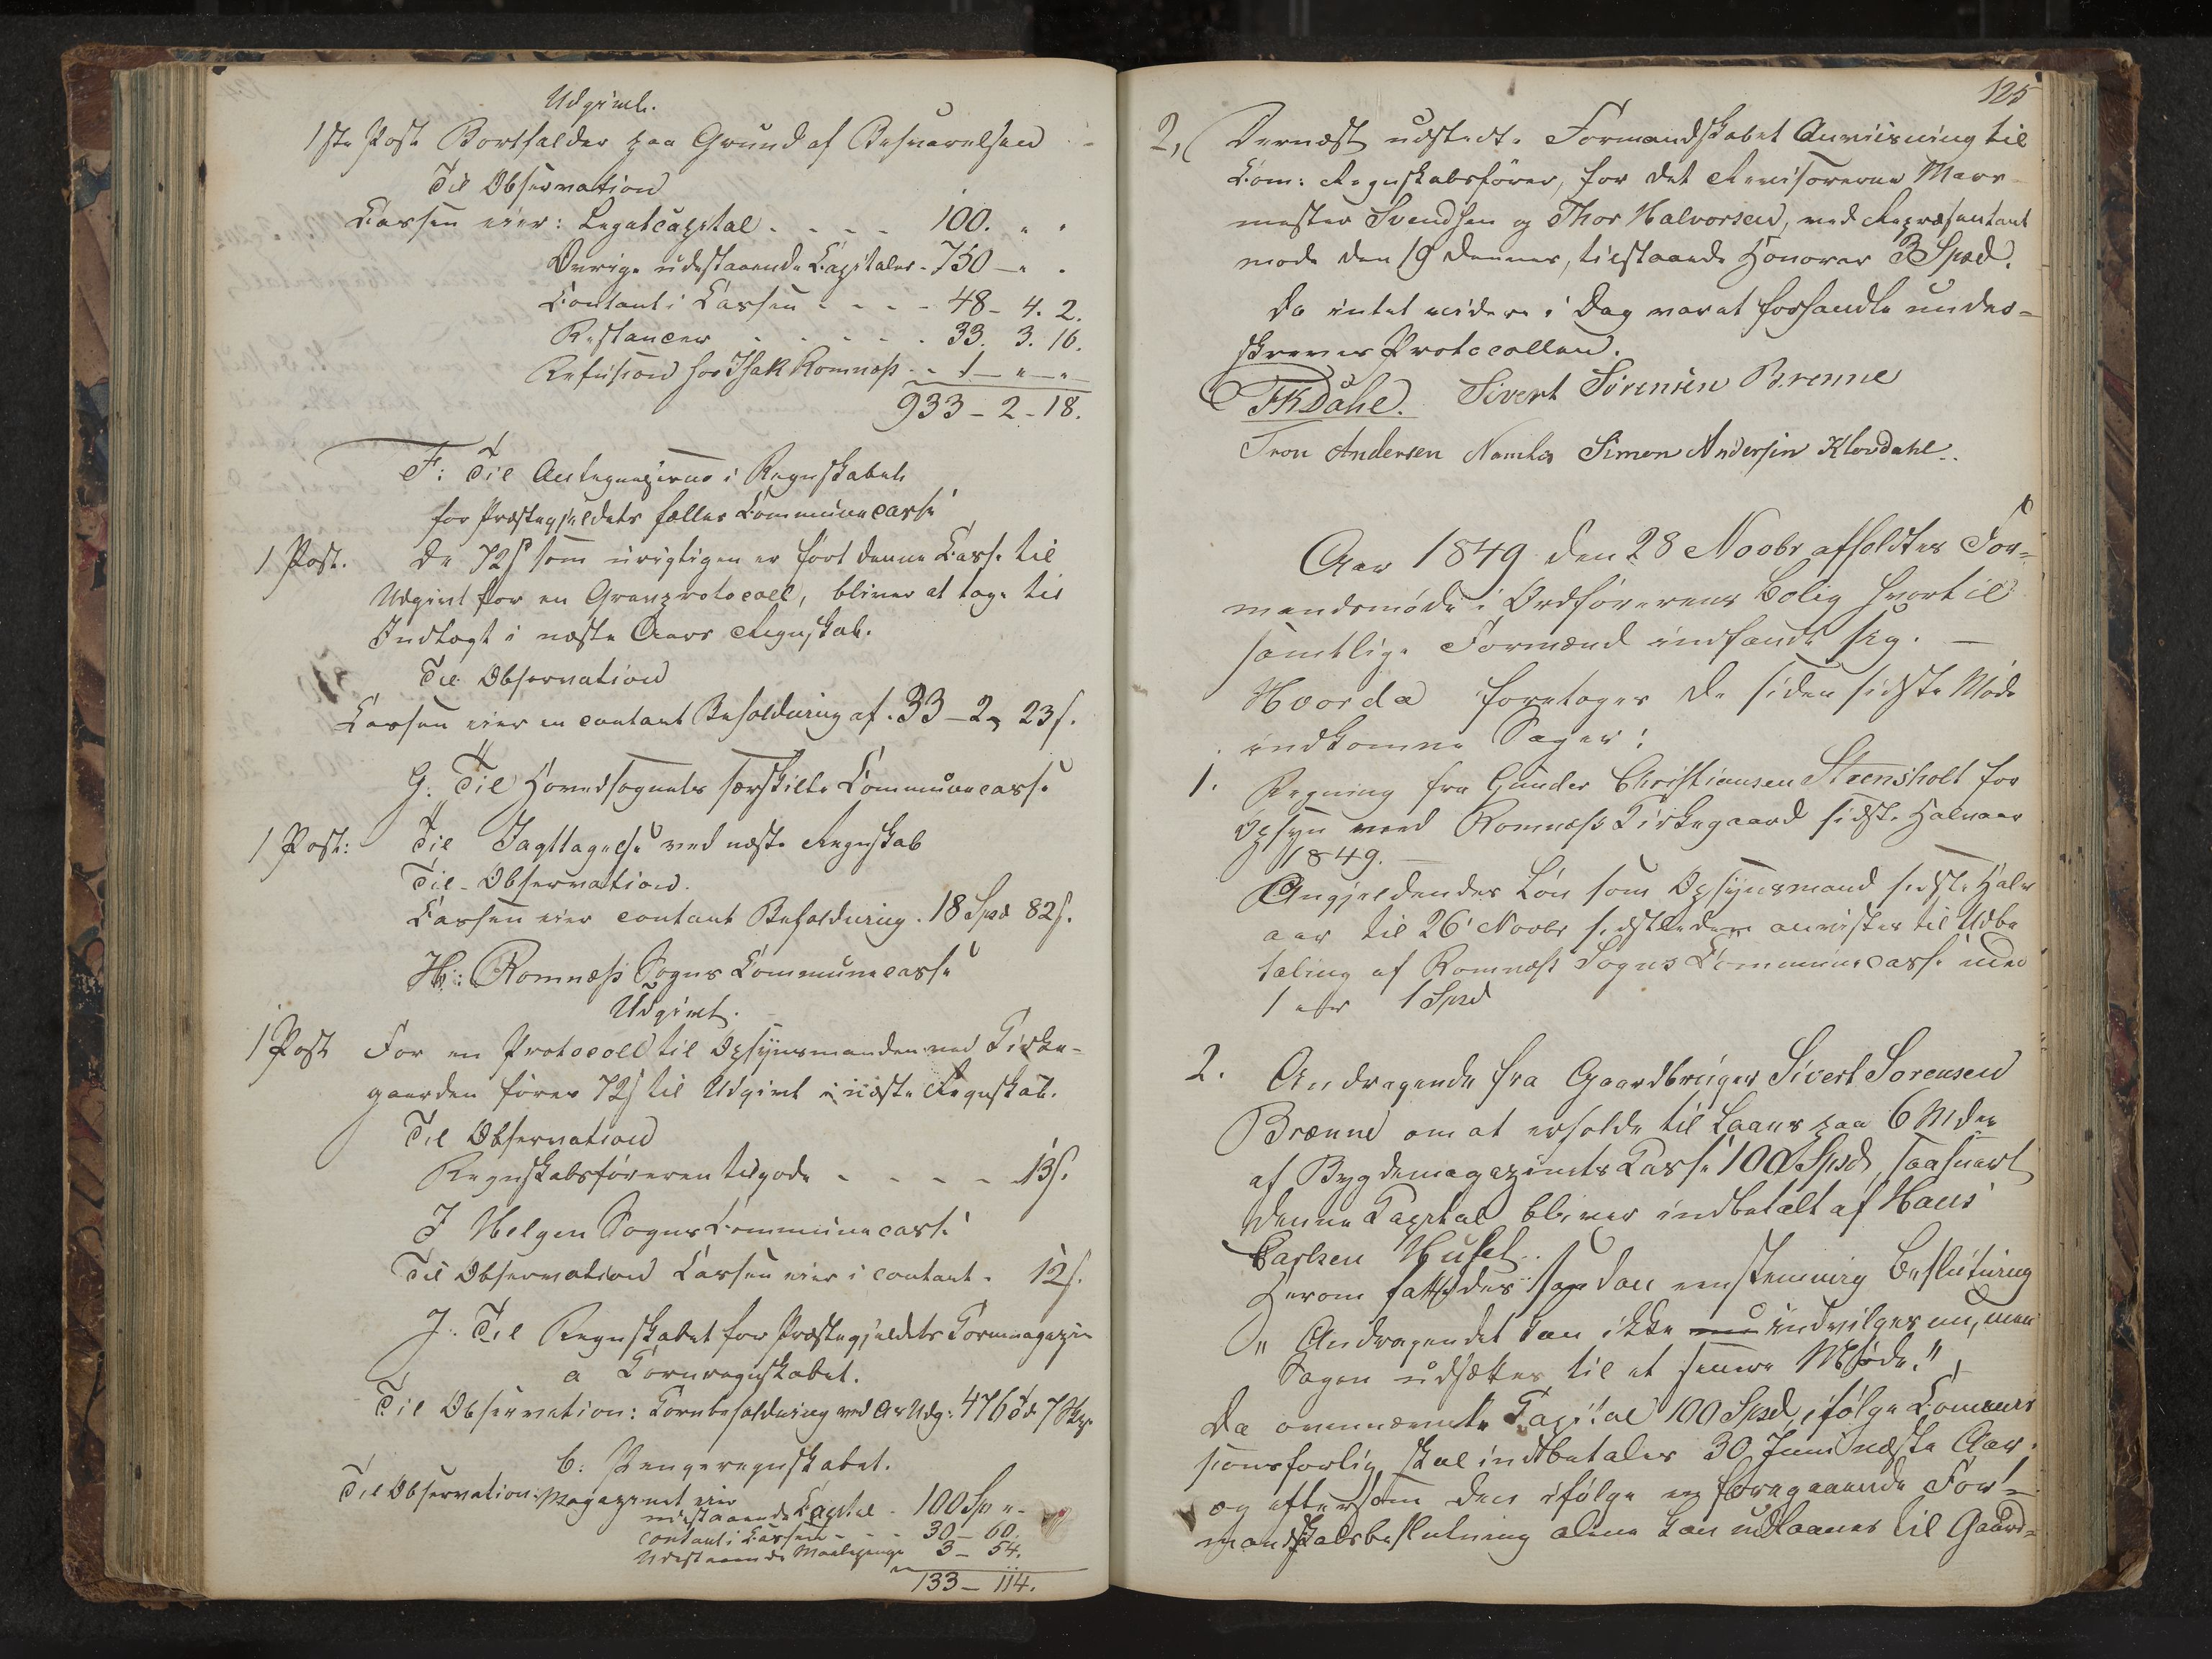 Udgivt.
1ste Post Bortfalder paa Grund af Besvarelsen
Til Observation
Cassen eier: Legatcapital - - - - 100. " "
Øvrige udestaaende Capitaler - 750 - " "
Contant i Cassen - - - - 48 - 4. 2.
Restancer - - - - - 33. 3. 16.
Refusion hos Isak Romnæs - - 1 - " - "
933 - 2 - 18.
F: Til Antegnelserne i Regnskabet
for Præstegjeldets fælles Communecasse
1 Post. De 72 s som urigtigen er ført denne Casse til
Udgivt for en Granprotocoll, bliver at tage til
Indtægt i næste Aars Regnskab.
Til Observation
Cassen eier en contant Beholdning af . 33 - 2 - 23 s.
G. Til Hovedsognets særskilte Communecasse
1 Post: Til Iagttagelse ved næste Regnskab
Til Observation.
Cassen eier contant Beholdning . 18 Spd 82 s.
H: Romnæs Sogns Communecasse
Udgivt.
1 Post For en Protocoll til Opsynsmanden ved Kirke-
gaarden føres 72 s til Udgivt i næste Regnskab.
Til Observation
Regnskabsføreren tilgode - - - - 13 s.
I Helgen Sogns Communecasse
Til Observation Cassen eier i contant - 12 s.
J. Til Regnskabet for Præstegjeldets Kornmagazin
a Kornregnskabet.
Til Observation: Kornbeholdning ved Aars Udg: 476 Td 7 Skp
b: Pengeregnskabet.
Til Observation: Magazinet eier
udestaaende Capital - 100 Sp " -
contant i Cassen - - - 30 - 60.
Udestaaende 3 - 54.
133 - 114.
125
2, Dernæst udstedte Formandskabet Anviisning til
Com: Regnskabsfører, for det Revisorerne Mar-
mester Svendsen og Thor Halvorsen, ved Repræsentant
møde den 19 dennes, tilstaaede Honorar 3 Spd.
Da intet videre i Dag var at forhandle under-
skreves Protocollen.
FKDahl. Sivert Sørensen Brenne
Tron Andersen Namløs Simon Andersen Klovdahl..
Aar 1849 den 28 Novbr afholdtes For-
mandsmøde i Ordførerens Bolig hvortil
samtlige Formænd indfandt sig. —
Hvorda foretoges de siden sidste Møde
indkomne Sager:
1. Regning fra Gunder Christiansen Steensholt for
Opsyn med Romnæs Kirkegaard sidste Halvaar
1849. —
Angjeldendes Løn som Opsynsmand sidste Halv
aar til 26 Novbr sidstleden anvistes til Udbe
taling af Romnæs Sogns Communecasse med
1 er 1 Spd
2. Andragende fra Gaardbruger Sivert Sorensen
Brænne om at erholde til Laans paa 6 Mdr
af Bygdemagazinets Casse 100 Spd, saasnart
denne Capital bliver indbetalt af Hans
Carlsen Huset..
Herom fattedes saadan eenstemmig Beslutning
" Andragendet kan ikke nu indvilges nu, men
Sagen udsættes til et senere Møde."
Da ovennævnte Capital 100 Spd, ifølge Commis
sionsforlig skal indbetales 30 Juni næste Aar
og eftersom den ifølge en foregaaende For-
mandskabsbeslutning alene kan udlaanes til Gaard=